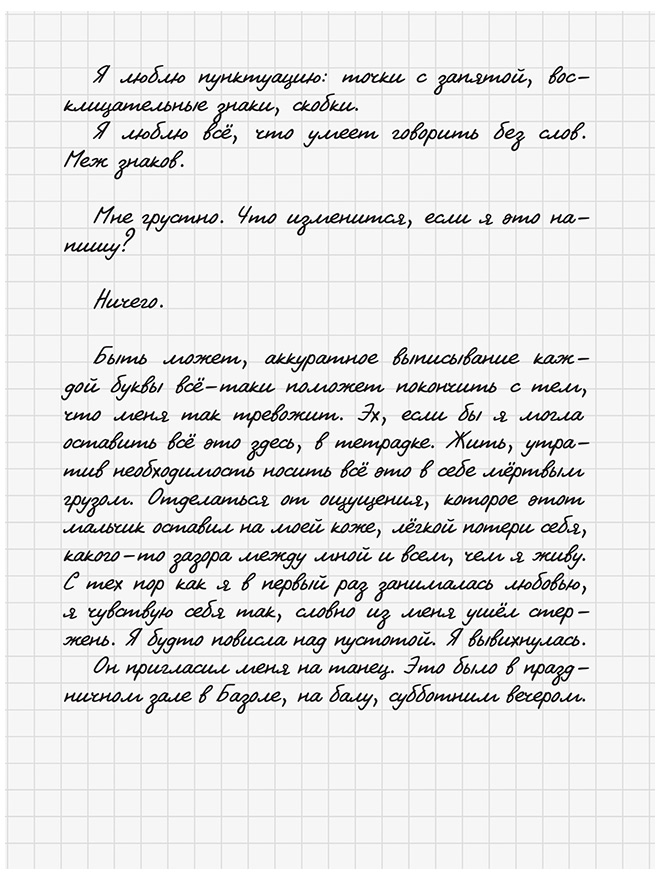 Я люблю пунктуацию: точки с запятой, вос-
клицательные знаки, скобки.
Я люблю всё, что умеет говорить без слов.
Меж знаков.
Мне грустно. Что изменится, если я это на-
пишу?
Ничего.
Быть может, аккуратное выписывание каж-
дой буквы всё-таки поможет покончить с тем,
что меня так тревожит. Эх, если бы я могла
оставить всё это здесь, в тетрадке. Жить, утра-
тив необходимость носить всё это в себе мёртвым
грузом. Отделаться от ощущения, которое этот
мальчик оставил на моей коже, лёгкой потери себя,
какого-то зазора между мной и всем, чем я живу.
С тех пор как я в первый раз занималась любовью,
я чувствую себя так, словно из меня ушёл стер-
жень. Я будто повисла над пустотой. Я вывихнулась.
Он пригласил меня на танец. Это было в празд-
ничном зале в Базоле, на балу, субботним вечером.